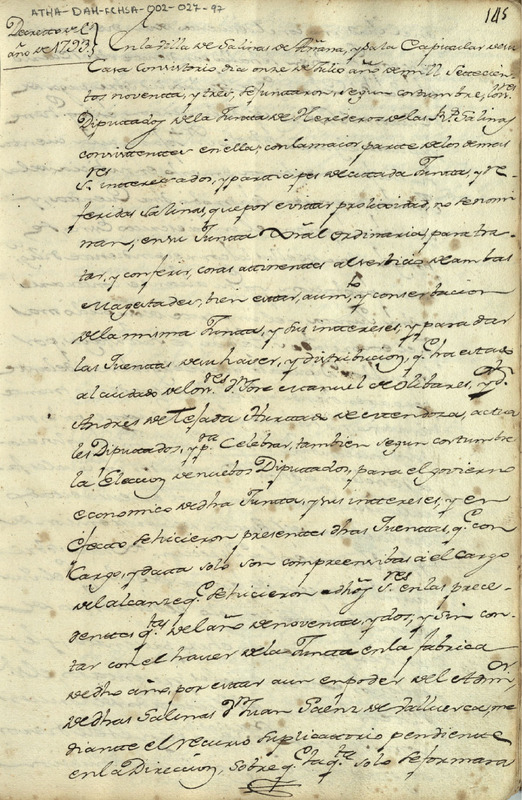 ATHA-DAH-FCHSA-002-027-97
145
Decretto de el
año de 1793.
En la Villa de Salinas de Añana, y sala Capitular de su
Casa Consistorio, dia onze de Julio año de mill settecien
tos noventa, y tres, se juntaron, segun costumbre, los
Diputados de la Junta de Herederos de las Rs. Salinas
convivientes en ella; con la maior parte de los demas
Sres. interesados, y participes de la citada Junta, y re
feridas Salinas, que por evitar prolixidad, no se nomi
nan; en su Junta Gral ordinaria, para tra
tar, y conferir, cosas attinentes al serbicio de ambas
Magestades, bien estar, aumto. y conserbacion
de la misma Junta, y sus intereses, y para dar
las Quentas de su haver, y distribucion, qe. ha estado
al cuidado de los Sres. Dn. Jose Manuel de Olibares, y Dn.
Andres de Tejada Hurtado de Mendoza, actua
les Diputados, y pra. Celebrar, tambien segun costumbre
la Eleccion de nuebos Diputados, para el govierno
economico de dha Junta, y sus intereses, y en
efecto se hicieron presentes dhas Quentas, qe. con
Cargo, y data solo son compreensibas a el cargo
del alcanze qe. se hicieron dhos Sres. en las prece
dentes qtas. del año de noventa, y dos, y sin con
tar con el haver de la Junta en la fabrica
de dho año, por estar aun en poder del Admor.
de dhas Salinas Dn. Juan Saenz de Valluerca, me
diante el recurso suplicatorio pendiente
en la Direccion, sobre qe. la qta. solo se formara